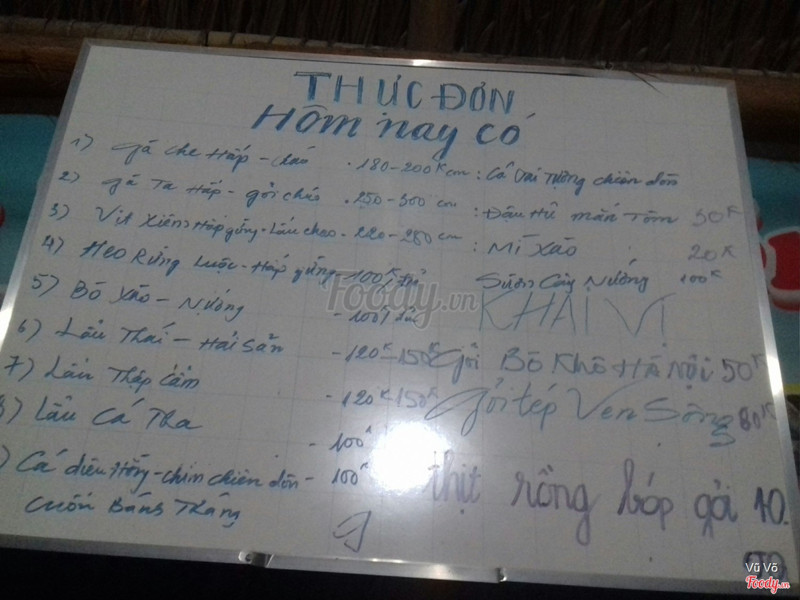 THỰC ĐƠN
Hôm nay có
1) gà che Hấp - cháo . 180-200K cm
2) gà Ta Hấp - gỏi cháo . 250-300 cm
3) Vịt Xiêm Hấp gừng - Lẩu chao - 220-280 cm
4) Heo Rừng Luộc - Hấp gừng - 100K
5) Bò Xào - Nướng - 100K
6) Lẩu Thái - Hải Sản - 120K-150K
7) Lẩu Thập Cẩm - 120K 150K
8) Lẩu Cá - 100K
) Cá diêu Hồng - chim chiên dòn - 100K
cuốn Bánh Tráng
: Cá tai tượng chiên dòn
: Đậu Hủ mắn Tôm 30K
: Mì Xào 20K
Sườn Cây Nướng 100K
KHAI VỊ
Gỏi Bò Khô Hà Nội 50K
Gỏi tép Ven Sông 80K
thịt rông bóp gỏi 10.
Foody.vn
Vũ Võ
Foody.vn